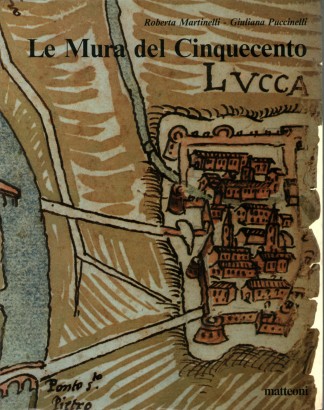 Roberta Martinelli - Giuliana Puccinelli
Le Mura del Cinquecento
LVCCA
Ponto S.to
Pietro
matteoni